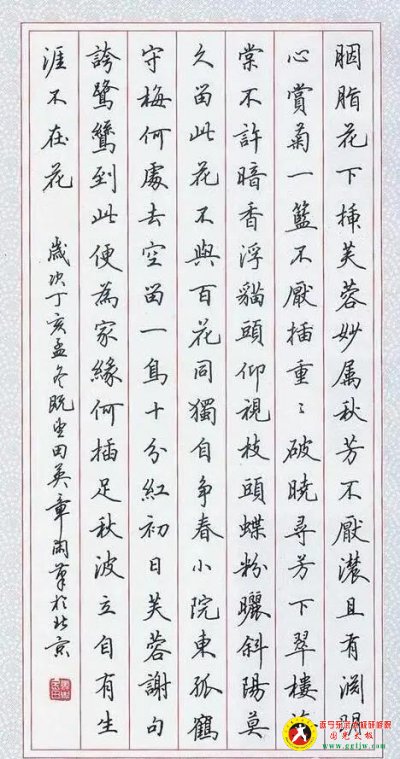 胭脂花下插芙蓉妙属秋芳不厭濃且有淵明
心賞菊一籃不厭插重〻破曉尋芳下翠樓海
棠不許暗香浮貓頭仰視枝頭蝶粉曬斜陽莫
久留此花不與百花同獨自争春小院東孤鶴
守梅何處去空留一鳥十分紅初日芙蓉謝句
誇鷺鷥到此便為家緣何插足秋波立自有生
涯不在花
歲次丁亥孟冬既望田英章閑筆於北京
www.ggtjw.com